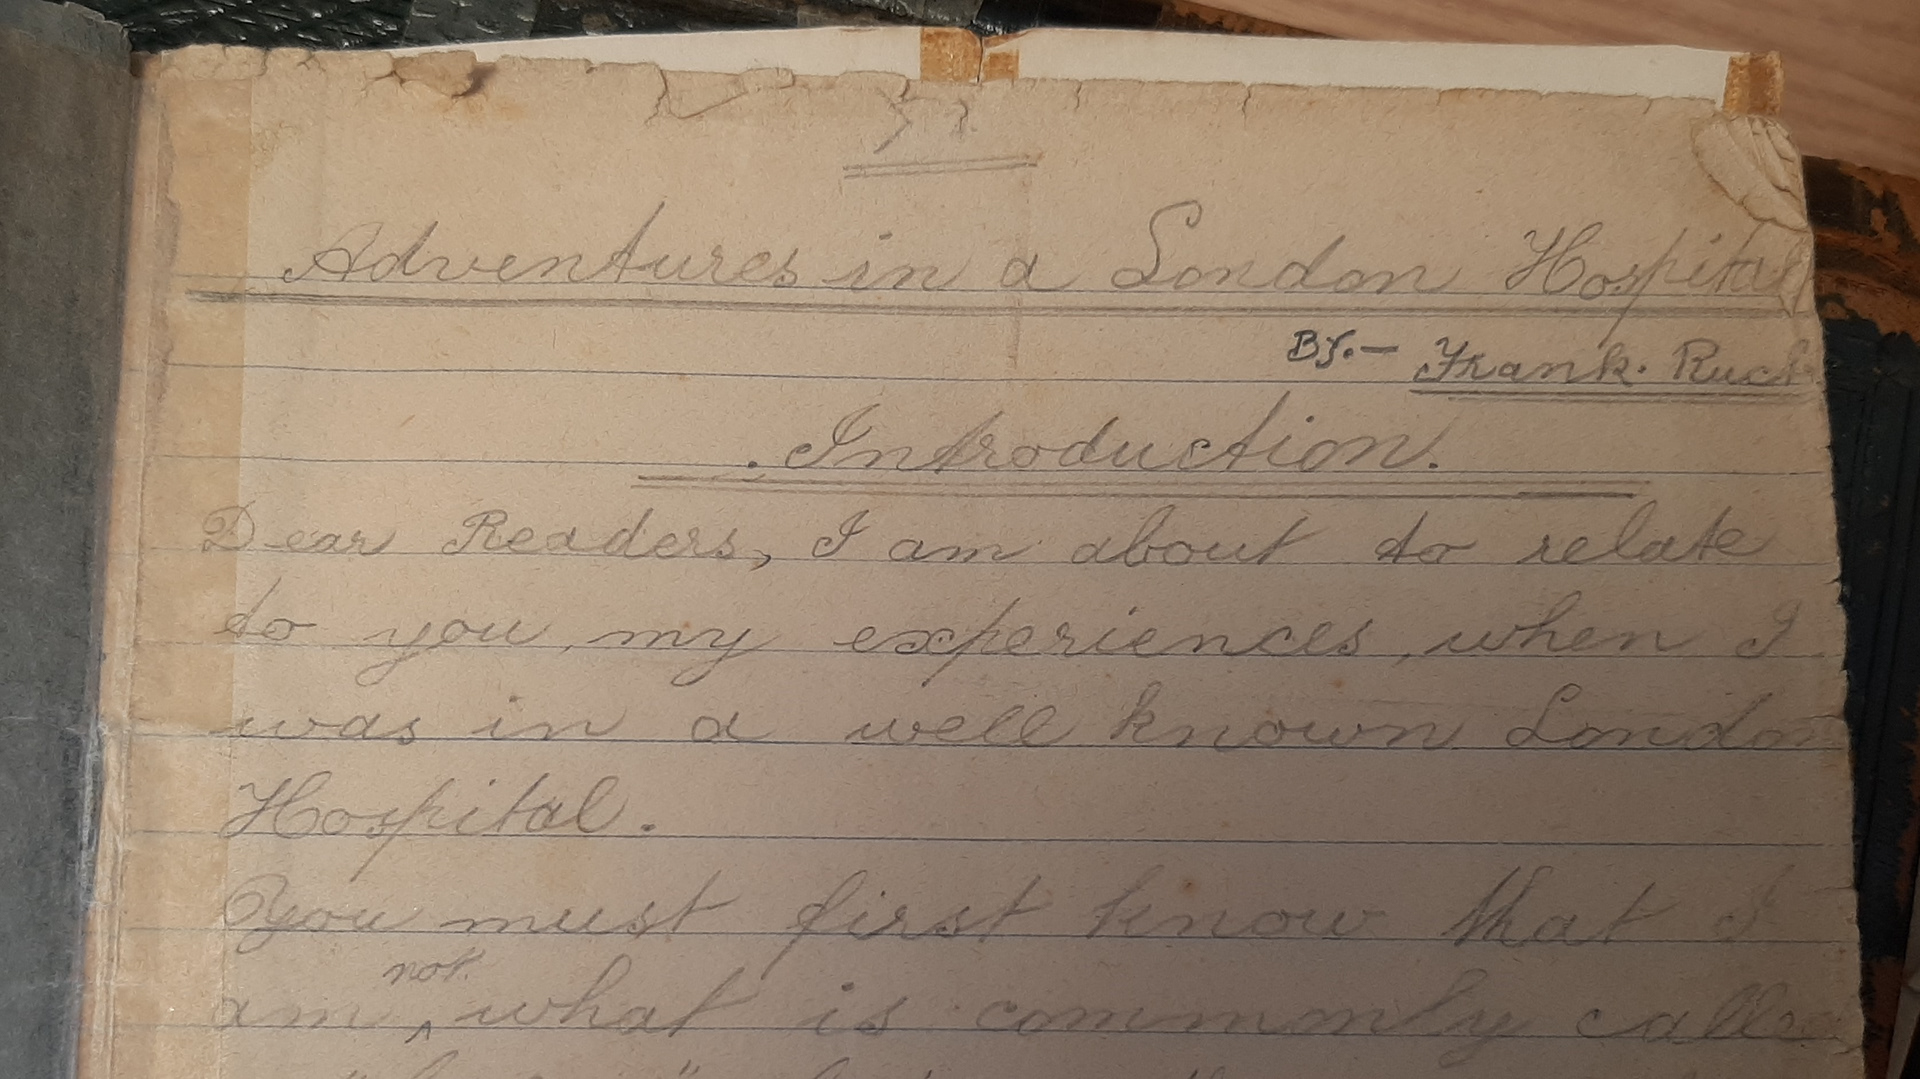 Adventures in a London Hospital
By.— Frank. Ruck
. Introduction.
Dear Readers, I am about to relate
to you, my experiences, when I
was in a well known London
Hospital.
You must first know that I
not
am ^ what is commonly